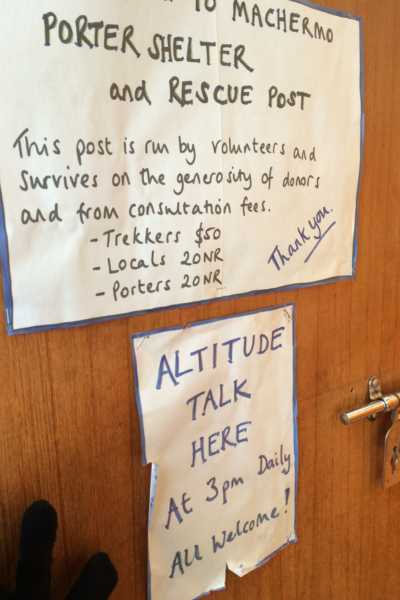 TO MACHERMO
PORTER SHELTER
and RESCUE POST
This post is run by volunteers and
Survives on the generosity of donors
and from consultation fees.
- Trekkers $50
- Locals 20NR
- Porters 20NR
Thank you.
ALTITUDE
TALK
HERE
At 3pm Daily
All Welcome!